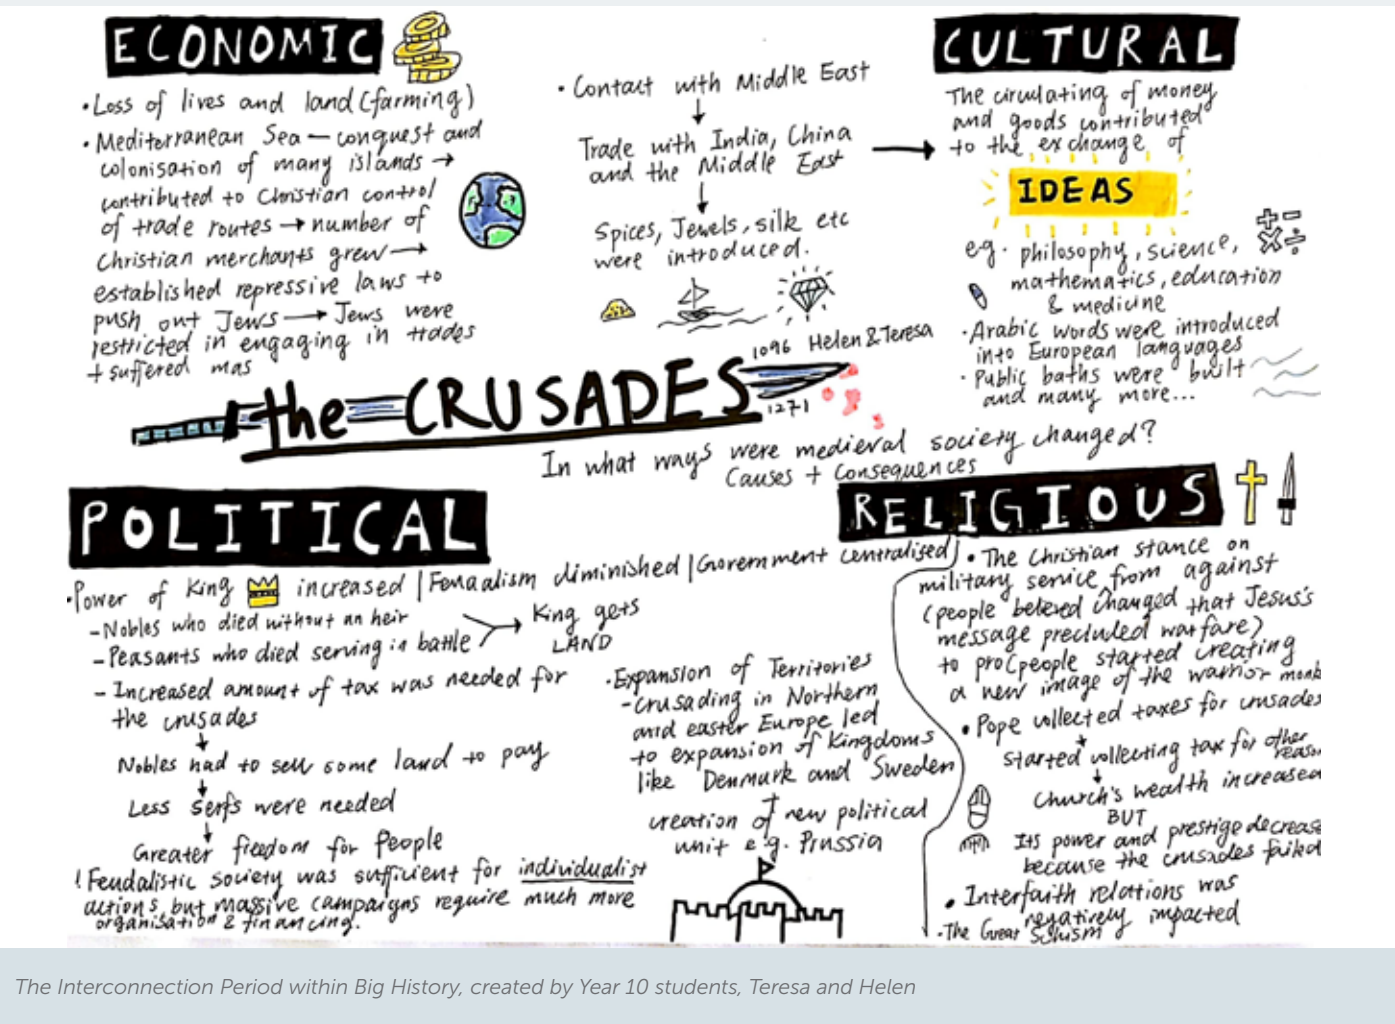 ECONOMIC
• Loss of lives and land (farming)
• Mediterranean Sea — conquest and
colonisation of many islands →
contributed to Christian control
of trade routes → number of
Christian merchants grew →
established repressive laws to
push out Jews → Jews were
restricted in engaging in trades
+ suffered mas
• Contact with Middle East
↓
Trade with India, China
and the Middle East →
↓
Spices, Jewels, silk etc
were introduced.
CULTURAL
The circulating of money
and goods contributed
to the exchange of
IDEAS
eg. philosophy, science,
mathematics, education
& medicine
• Arabic words were introduced
into European languages
• Public baths were built
and many more...
1096 Helen & Teresa
the CRUSADES
1271
In what ways were medieval society changed?
Causes + Consequences
POLITICAL
• Power of King increased | Feudalism diminished | Government centralised
- Nobles who died without an heir
- Peasants who died serving in battle
→ King gets
LAND
- Increased amount of tax was needed for
the crusades
↓
Nobles had to sell some land to pay
↓
Less serfs were needed
↓
Greater freedom for People
! Feudalistic society was sufficient for individualist
actions, but massive campaigns require much more
organisation & financing.
• Expansion of Territories
- crusading in Northern
and easter Europe led
to expansion of Kingdoms
like Denmark and Sweden
creation of new political
unit e.g. Prussia
RELIGIOUS
• The Christian stance on
military service changed from against
(people believed that Jesus's
message precluded warfare)
to pro (people started creating
a new image of the warrior monk
• Pope collected taxes for crusades
↓
started collecting tax for other
reason
↓
Church's wealth increased
BUT
Its power and prestige decrease
because the crusades failed
• Interfaith relations was
negatively impacted
• The Great Schism
The Interconnection Period within Big History, created by Year 10 students, Teresa and Helen